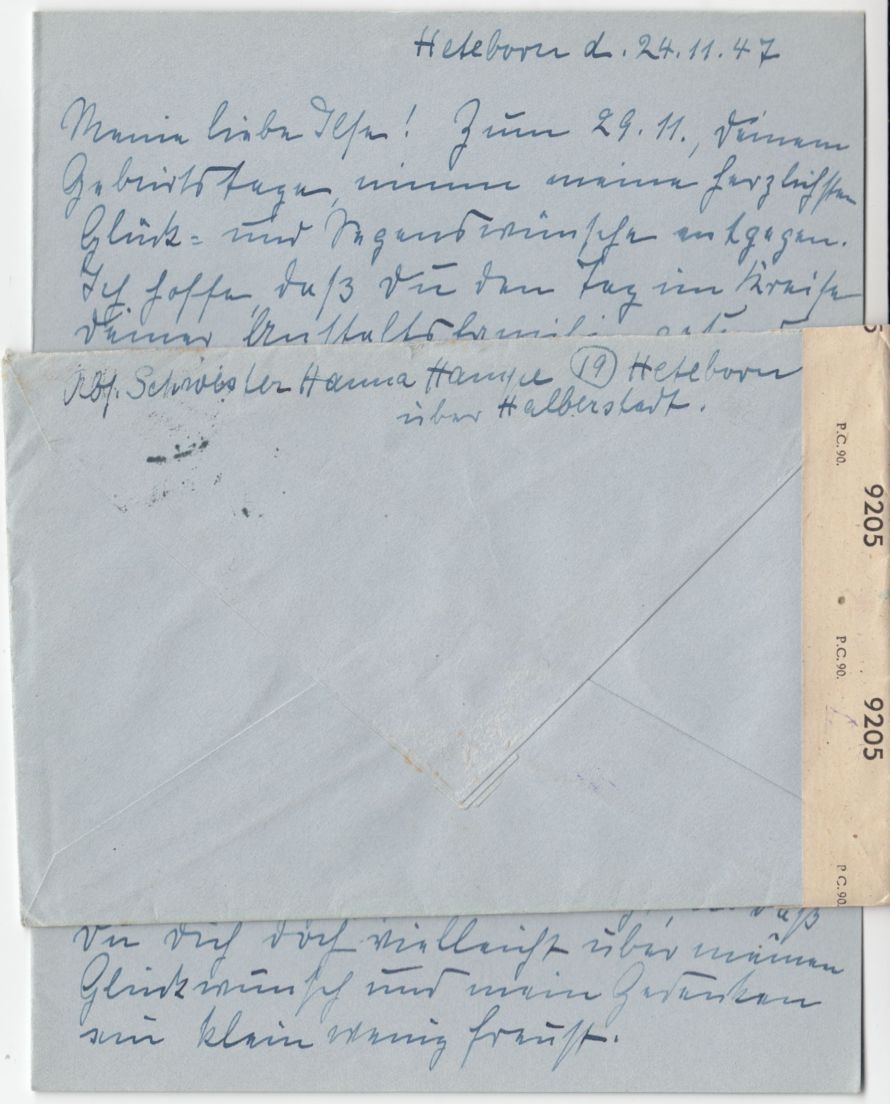 Heteborn d. 24.11.47
Meine liebe Ilse! Zum 29.11., Deinem
Geburtstage, nimm meine herzlichsten
Glück- und Segenswünsche entgegen.
Ich hoffe, daß Du den Tag im Kreise
Deiner Anstaltsfamilie
Abs. Schwester Hanna Hampe (19) Heteborn
über Halberstadt.
P.C. 90.
9205
P.C. 90.
9205
P.C. 90.
daß
Du Dich doch vielleicht über meinen
Glückwunsch und mein Gedenken
ein klein wenig freust.